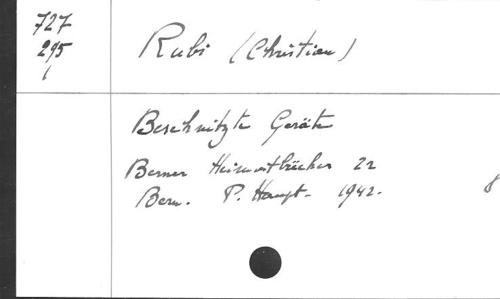 727
295
1
Rubi (Christian)
Beschnitzte Geräte
Berner Heimatbücher 22
Bern. P. Haupt. 1942.
8